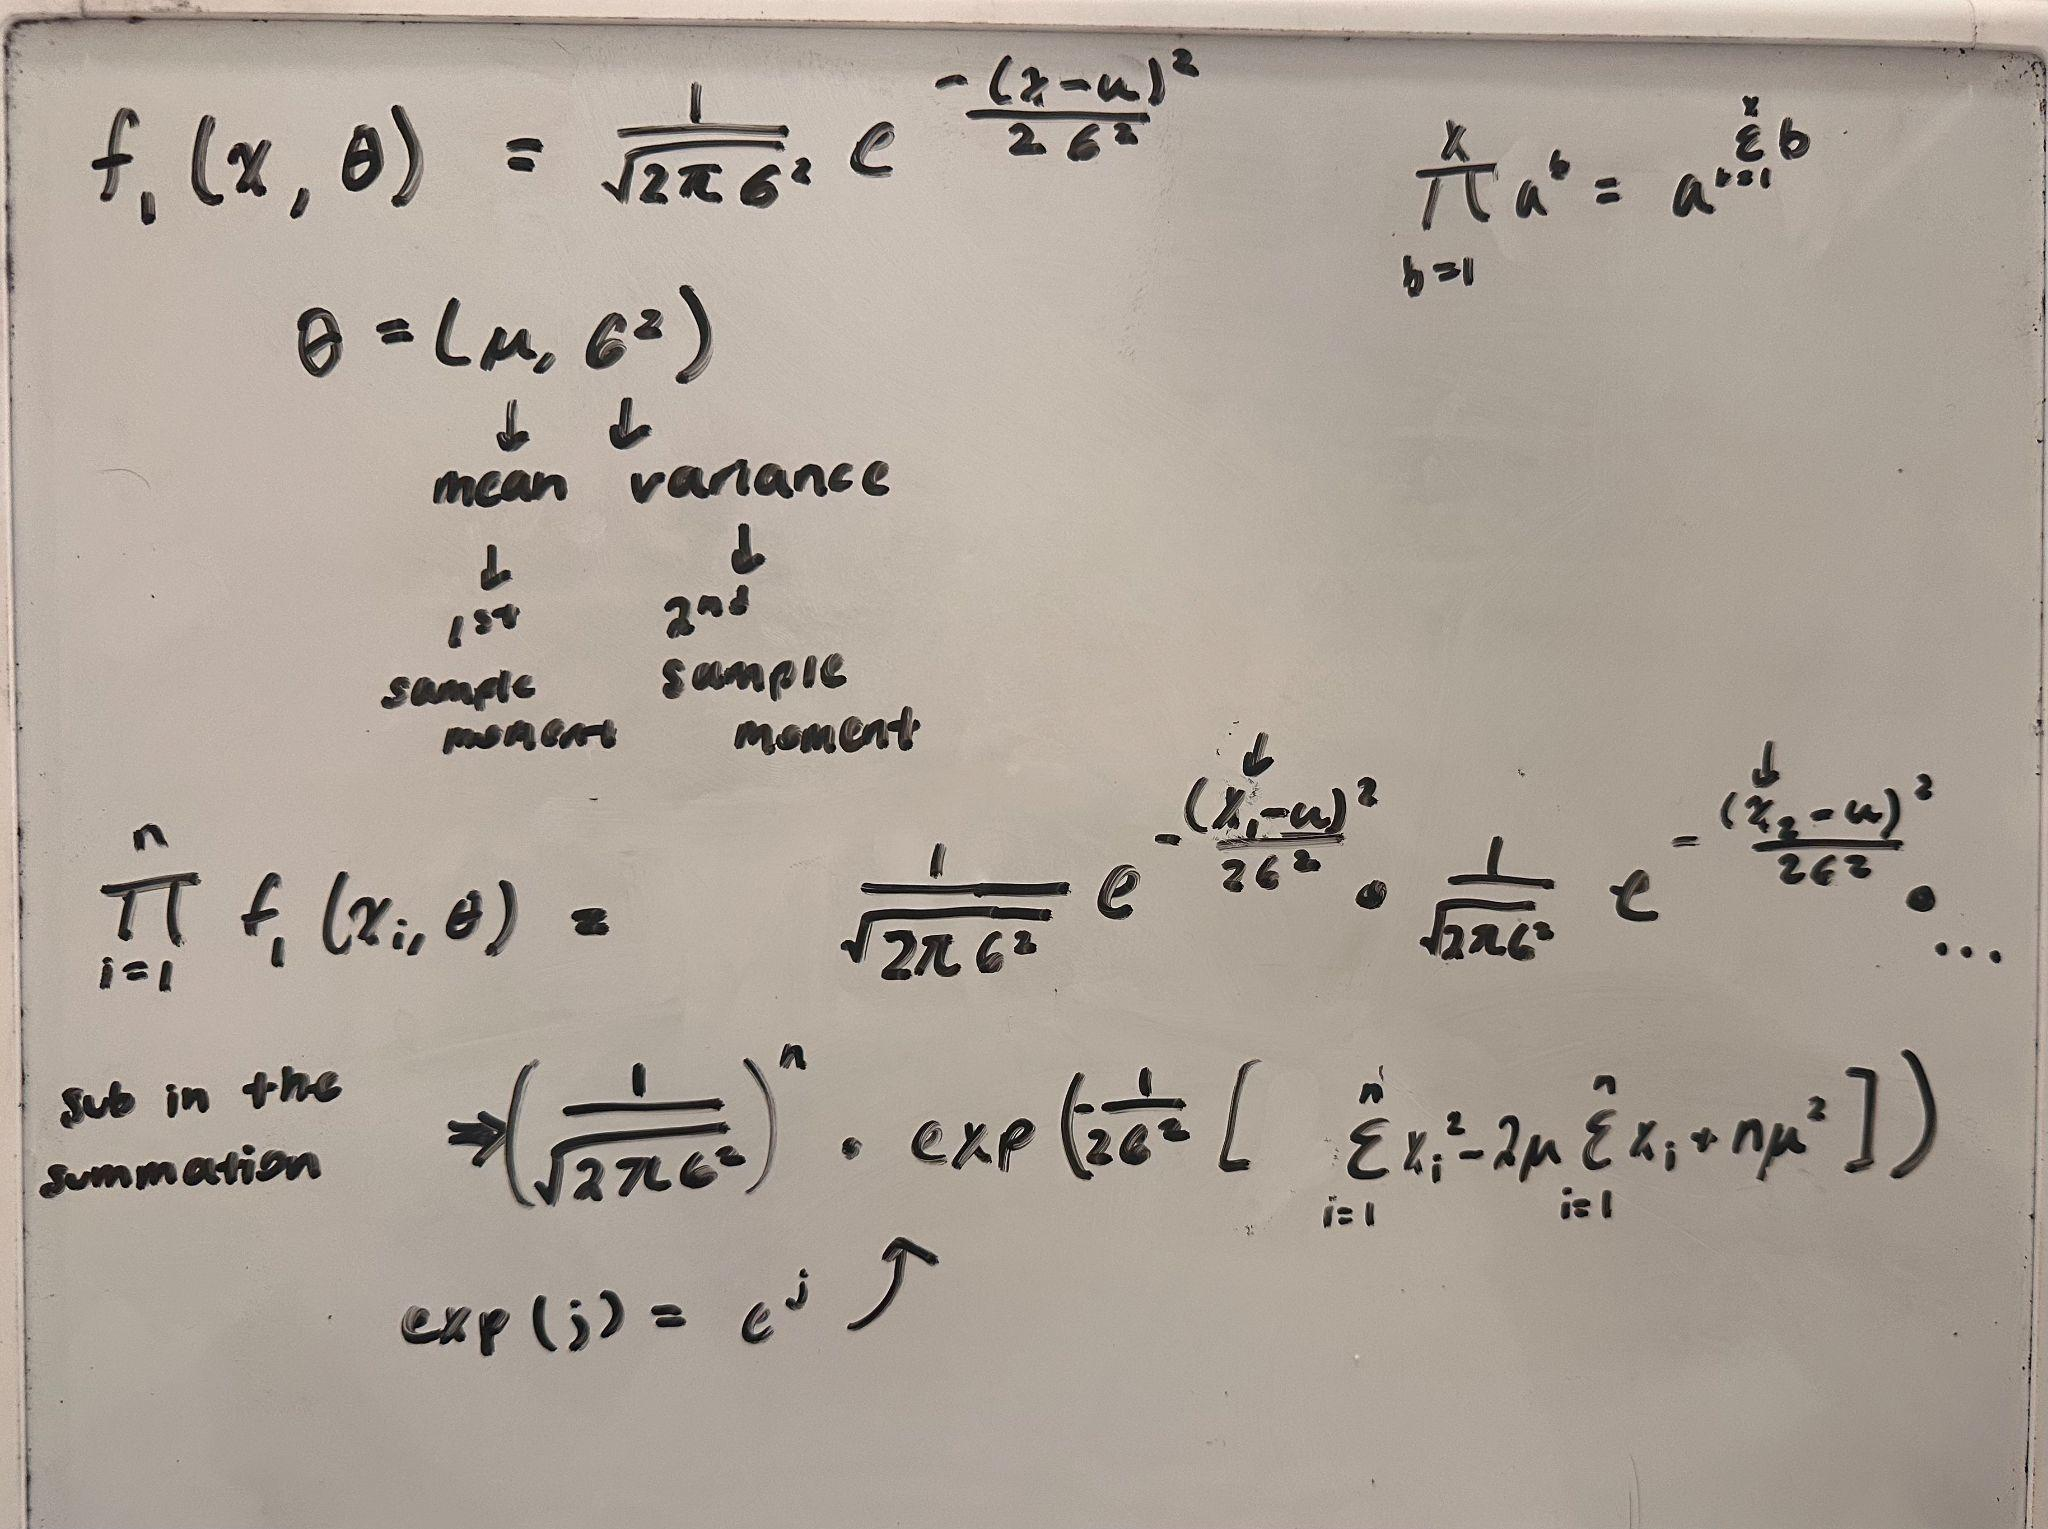 f₁(x, θ) = 1/√(2πσ²) e^(-(x-μ)²/2σ²)
∏_{b=1}^{x} a^b = a^(Σ_{b=1}^{x} b)
θ = (μ, σ²)
↓ ↓
mean variance
↓ ↓
1st 2nd
sample sample
moment moment
↓ ↓
∏_{i=1}^{n} f₁(xᵢ, θ) = 1/√(2πσ²) e^(-(x₁-μ)²/2σ²) • 1/√(2πσ²) e^(-(x₂-μ)²/2σ²) • ...
sub in the
summation
⇒ (1/√(2πσ²))^n • exp(-1/2σ² [Σ_{i=1}^{n} xᵢ² - 2μ Σ_{i=1}^{n} xᵢ + nμ²])
exp(j) = e^j ↗